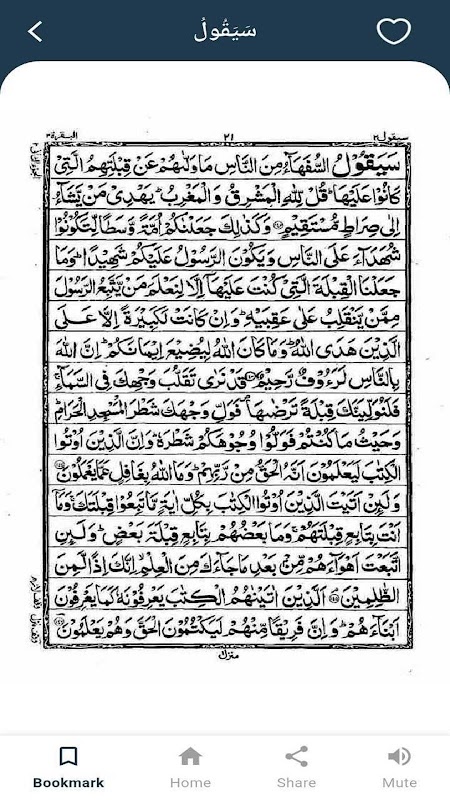 سَيَقُولُ
سيقول ٢
٢١
البقرة ٢
سَيَقُوْلُ السُّفَهَآءُ مِنَ النَّاسِ مَا وَلّٰىهُمْ عَنْ قِبْلَتِهِمُ الَّتِيْ
كَانُوْا عَلَيْهَا ؕ قُلْ لِّلّٰهِ الْمَشْرِقُ وَالْمَغْرِبُ ؕ يَهْدِيْ مَنْ يَّشَآءُ
اِلٰى صِرَاطٍ مُّسْتَقِيْمٍ وَكَذٰلِكَ جَعَلْنٰكُمْ اُمَّةً وَّسَطًا لِّتَكُوْنُوْا
شُهَدَآءَ عَلَى النَّاسِ وَيَكُوْنَ الرَّسُوْلُ عَلَيْكُمْ شَهِيْدًا ؕ وَمَا
جَعَلْنَا الْقِبْلَةَ الَّتِيْ كُنْتَ عَلَيْهَآ اِلَّا لِنَعْلَمَ مَنْ يَّتَّبِعُ الرَّسُوْلَ
مِمَّنْ يَّنْقَلِبُ عَلٰى عَقِبَيْهِ ؕ وَاِنْ كَانَتْ لَكَبِيْرَةً اِلَّا عَلَى
الَّذِيْنَ هَدَى اللّٰهُ ؕ وَمَا كَانَ اللّٰهُ لِيُضِيْعَ اِيْمَانَكُمْ ؕ اِنَّ اللّٰهَ
بِالنَّاسِ لَرَءُوْفٌ رَّحِيْمٌ قَدْ نَرٰى تَقَلُّبَ وَجْهِكَ فِي السَّمَآءِ ۚ
فَلَنُوَلِّيَنَّكَ قِبْلَةً تَرْضٰىهَا ۪ فَوَلِّ وَجْهَكَ شَطْرَ الْمَسْجِدِ الْحَرَامِ ؕ
وَحَيْثُ مَا كُنْتُمْ فَوَلُّوْا وُجُوْهَكُمْ شَطْرَهٗ ؕ وَاِنَّ الَّذِيْنَ اُوْتُوا
الْكِتٰبَ لَيَعْلَمُوْنَ اَنَّهُ الْحَقُّ مِنْ رَّبِّهِمْ ؕ وَمَا اللّٰهُ بِغَافِلٍ عَمَّا يَعْمَلُوْنَ
وَلَئِنْ اَتَيْتَ الَّذِيْنَ اُوْتُوا الْكِتٰبَ بِكُلِّ اٰيَةٍ مَّا تَبِعُوْا قِبْلَتَكَ ۚ وَمَآ
اَنْتَ بِتَابِعٍ قِبْلَتَهُمْ ۚ وَمَا بَعْضُهُمْ بِتَابِعٍ قِبْلَةَ بَعْضٍ ؕ وَلَئِنِ
اتَّبَعْتَ اَهْوَآءَهُمْ مِّنْ بَعْدِ مَا جَآءَكَ مِنَ الْعِلْمِ ۙ اِنَّكَ اِذًا لَّمِنَ
الظّٰلِمِيْنَ اَلَّذِيْنَ اٰتَيْنٰهُمُ الْكِتٰبَ يَعْرِفُوْنَهٗ كَمَا يَعْرِفُوْنَ
اَبْنَآءَهُمْ ؕ وَاِنَّ فَرِيْقًا مِّنْهُمْ لَيَكْتُمُوْنَ الْحَقَّ وَهُمْ يَعْلَمُوْنَ
Bookmark
Home
Share
Mute